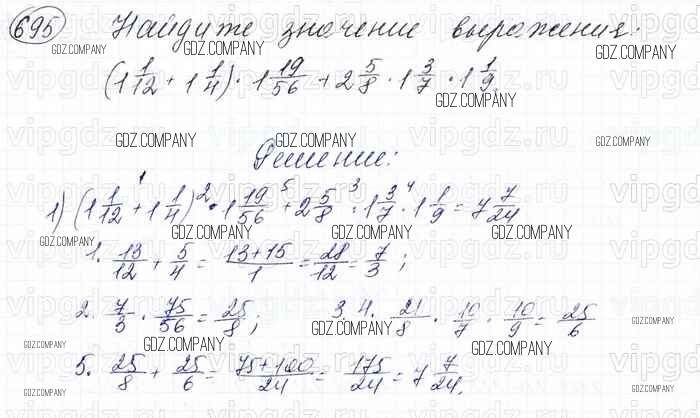 695 Найдите значение выражения:
(1 1/12 + 1 1/4) · 1 19/56 + 2 5/8 · 1 3/7 · 1 1/9.
Решение:
1) (1 1/12 +¹ 1 1/4) ²· 1 19/56 ⁵+ 2 5/8 ³: 1 3/7 ⁴· 1 1/9 = 7 7/24
1. 13/12 + 5/4 = 13+15/1 = 28/12 = 7/3 ;
2. 7/3 · 75/56 = 25/8 ; 3. 4. 21/8 · 10/7 · 10/9 = 25/6
5. 25/8 + 25/6 = 75+100/24 = 175/24 = 7 7/24.
GDZ.COMPANY
vipgdz.ru